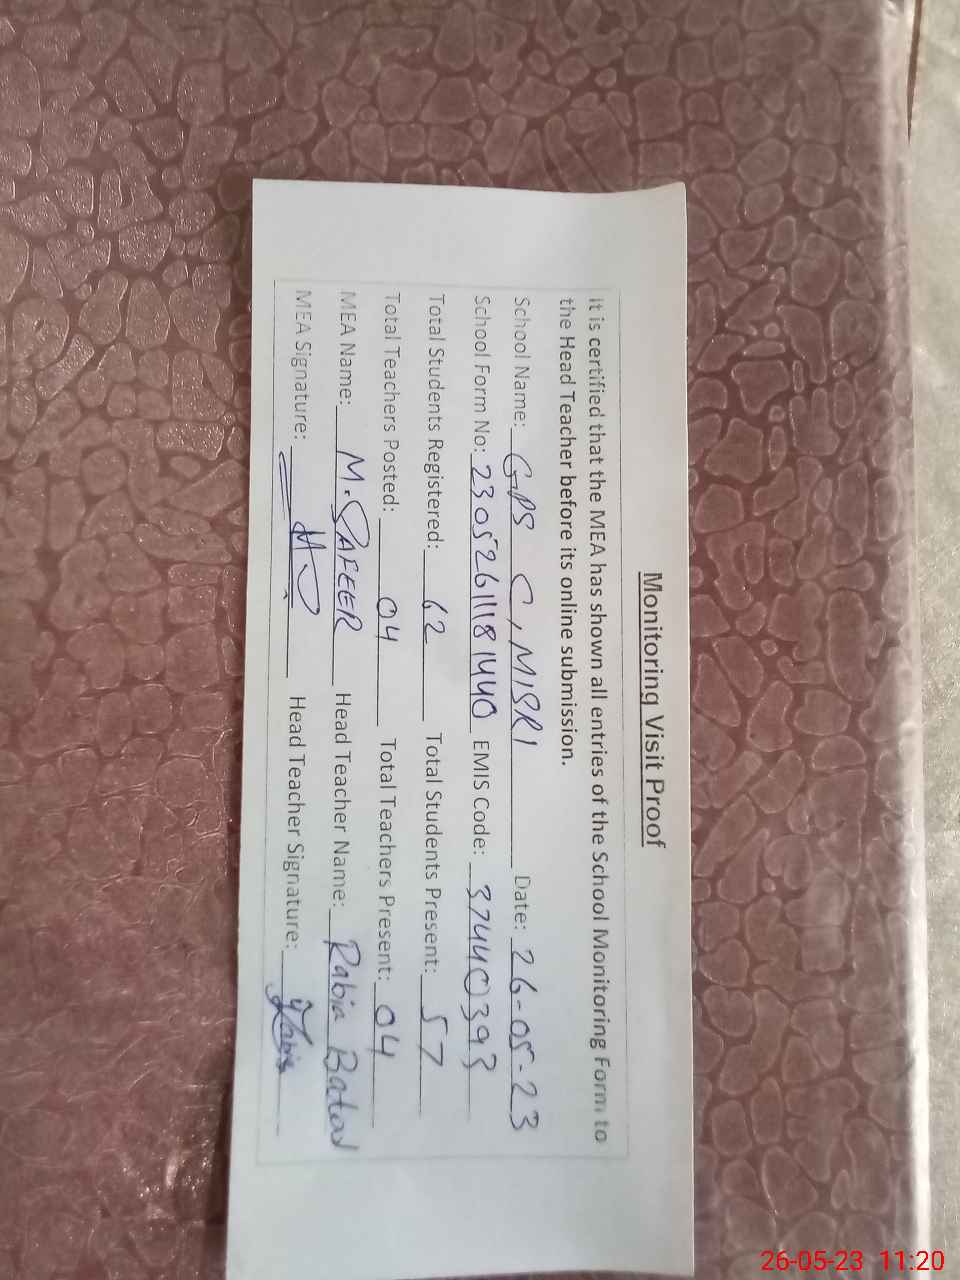 Monitoring Visit Proof
It is certified that the MEA has shown all entries of the School Monitoring Form to
the Head Teacher before its online submission.
School Name: GPS C, MISRI Date: 26-05-23
School Form No: 23052611181440 EMIS Code: 37440393
Total Students Registered: 62 Total Students Present: 57
Total Teachers Posted: 04 Total Teachers Present: 04
MEA Name: M. SAFEER Head Teacher Name: Rabia Batool
MEA Signature: Head Teacher Signature: Rabia
26-05-23 11:20